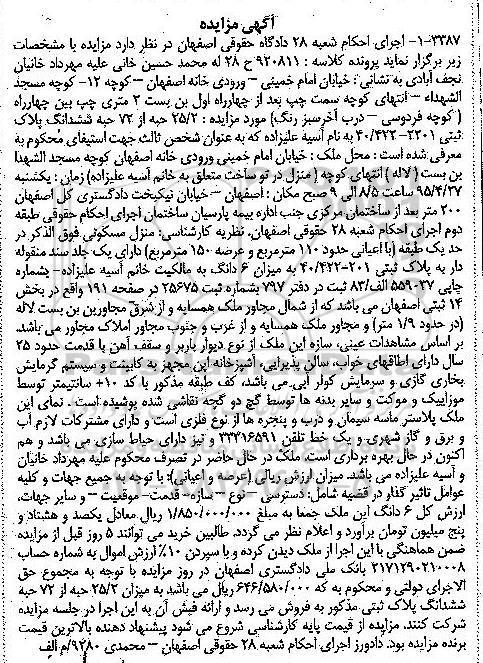 آگهی مزایده
۱-۳۳۸۷- اجرای احکام شعبه ۲۸ دادگاه حقوقی اصفهان در نظر دارد مزایده با مشخصات
زیر برگزار نماید پرونده کلاسه : ۹۲۰۸۱۱ ح ۲۸ له محمد حسین خانی علیه مهرداد خانیان
نجف آبادی به نشانی : خیابان امام خمینی – ورودی خانه اصفهان – کوچه ۱۲- کوچه مسجد
الشهداء – انتهای کوچه سمت چپ بعد از چهارراه اول بن بست ۲ متری چپ بین چهارراه
( کوچه فردوسی – درب آخرسبز رنگ) مورد مزایده : ۲۵/۲ حبه از ۷۲ حبه ششدانگ پلاک
ثبتی ۲۲۰۱-۴۰/۴۲۲ به نام آسیه علیزاده که به عنوان شخص ثالث جهت استیفای محکوم به
معرفی شده است : محل ملک : خیابان امام خمینی ورودی خانه اصفهان کوچه مسجد الشهدا
بن بست ( لاله ) انتهای کوچه ( منزل در تو ساخت متعلق به خانم آسیه علیزاده) زمان : یکشنبه
۹۵/۴/۲۷ ساعت ۸/۵ الی ۹ صبح مکان : اصفهان – خیابان نیکبخت دادگستری کل اصفهان
۲۰۰ متر بعد از ساختمان مرکزی جنب اداره بیمه پارسیان ساختمان اجرای احکام حقوقی طبقه
دوم اجرای احکام شعبه ۲۸ حقوقی اصفهان. نظریه کارشناسی: منزل مسکونی فوق الذکر در
حد یک طبقه (با اعیانی حدود ۱۱۰ مترمربع و عرصه ۱۵۰ مترمربع) دارای یک جلد سند منقوله
دار به پلاک ثبتی ۲۰۱-۴۰/۴۲۲ به میزان ۶ دانگ به مالکیت خانم آسیه علیزاده– بشماره
چاپی ۵۵۹۰۲۷ الف/۸۳ ثبت در دفتر ۷۹۷ بشماره ثبت ۲۵۶۷۵ در صفحه ۱۹۱ واقع در بخش
۱۴ ثبتی اصفهان می باشد که از شمال مجاور ملک همسایه و از شرق مجاورین بن بست لاله
(در حدود ۱/۹ متر) و مجاور ملک همسایه و از غرب و جنوب مجاور املاک مجاور می باشد.
بر اساس مشاهدات عینی، سازه این ملک از نوع دیوار باربر و سقف آهن با قدمت حدود ۲۵
سال دارای اطاقهای خواب، سالن پذیرایی، آشپزخانه اپن مجهز به کابینت و سیستم گرمایش
بخاری گازی و سرمایش کولر آبی می باشد، کف طبقه مذکور با کد ۱۰+ سانتیمتر توسط
موزاییک و موکت و سایر بدنه ها توسط گچ دو گچه نقاشی شده پوشیده است . نمای این
ملک پلاستر ماسه سیمان و درب و پنجره ها از نوع فلزی است و دارای مشترکات لازم آب
و برق و گاز شهری و یک خط تلفن ۳۳۳۱۶۵۹۱ و نیز دارای حیاط سازی می باشد و هم
اکنون در حال بهره برداری است. ملک در حال حاضر در تصرف محکوم علیه مهرداد خانیان
و آسیه علیزاده می باشد. میزان ارزش ریالی (عرصه و اعیانی): با توجه به جمیع جهات و کلیه
عوامل تاثیر گذار در قضیه شامل: دسترسی – نوع – سازه – قدمت- موقعیت – و سایر جهات،
ارزش کل ۶ دانگ این ملک جمعا به مبلغ ۱/۸۵۰/۰۰۰/۰۰۰ ریال معادل یکصد و هشتاد و
پنج میلیون تومان برآورد و اعلام نظر می گردد. طالبین خرید می توانند ۵ روز قبل از مزایده
ضمن هماهنگی با این اجرا از ملک دیدن کرده و با سپردن ۱۰٪ ارزش اموال به شماره حساب
۲۱۷۱۲۹۰۲۱۰۰۰۸ بانک ملی دادگستری اصفهان در روز مزایده با توجه به مجموع حق
الاجرای دولتی و محکوم به که ۶۴۶/۵۸۰/۰۰۰ ریال می باشد به میزان ۲۵/۲ حبه از ۷۲ حبه
ششدانگ پلاک ثبتی مذکور به فروش می رسد و ارائه فیش آن به این اجرا در جلسه مزایده
شرکت کنند. مزایده از قیمت پایه کارشناسی شروع می شود پیشنهاد دهنده بالاترین قیمت
برنده مزایده بود. دادورز اجرای احکام شعبه ۲۸ حقوقی اصفهان – محمدی ۹۲۸۰/م الف